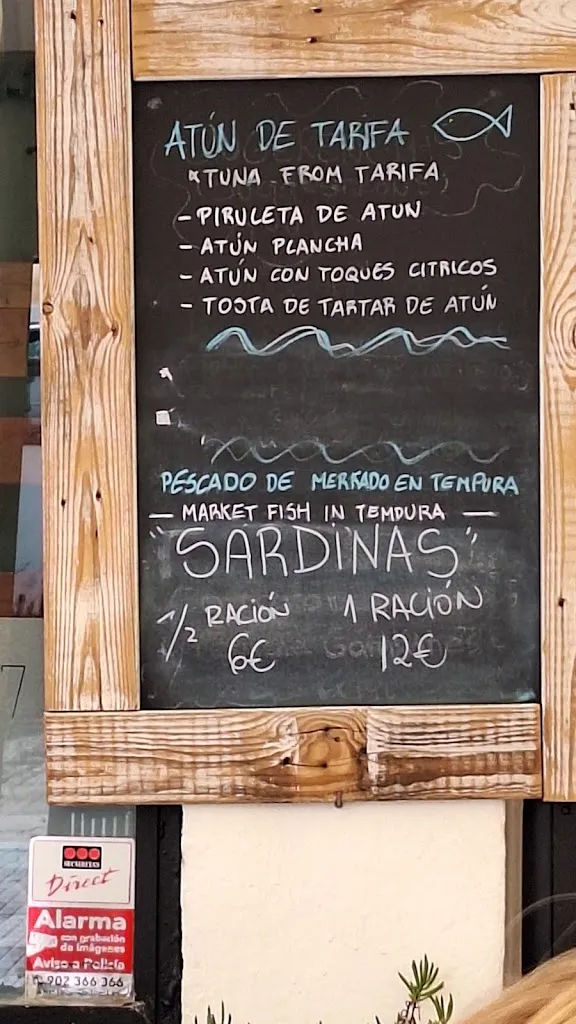 ATÚN DE TARIFA
*TUNA FROM TARIFA
- PIRULETA DE ATUN
- ATÚN PLANCHA
- ATÚN CON TOQUES CITRICOS
- TOSTA DE TARTAR DE ATÚN
PESCADO DE MERKADO EN TEMPURA
— MARKET FISH IN TEMPURA —
"SARDINAS"
1/2 RACIÓN 1 RACIÓN
6€ 12€
7
SECURITAS
Direct
Alarma
con grabación
de imágenes
Aviso a Policía
902 366 366